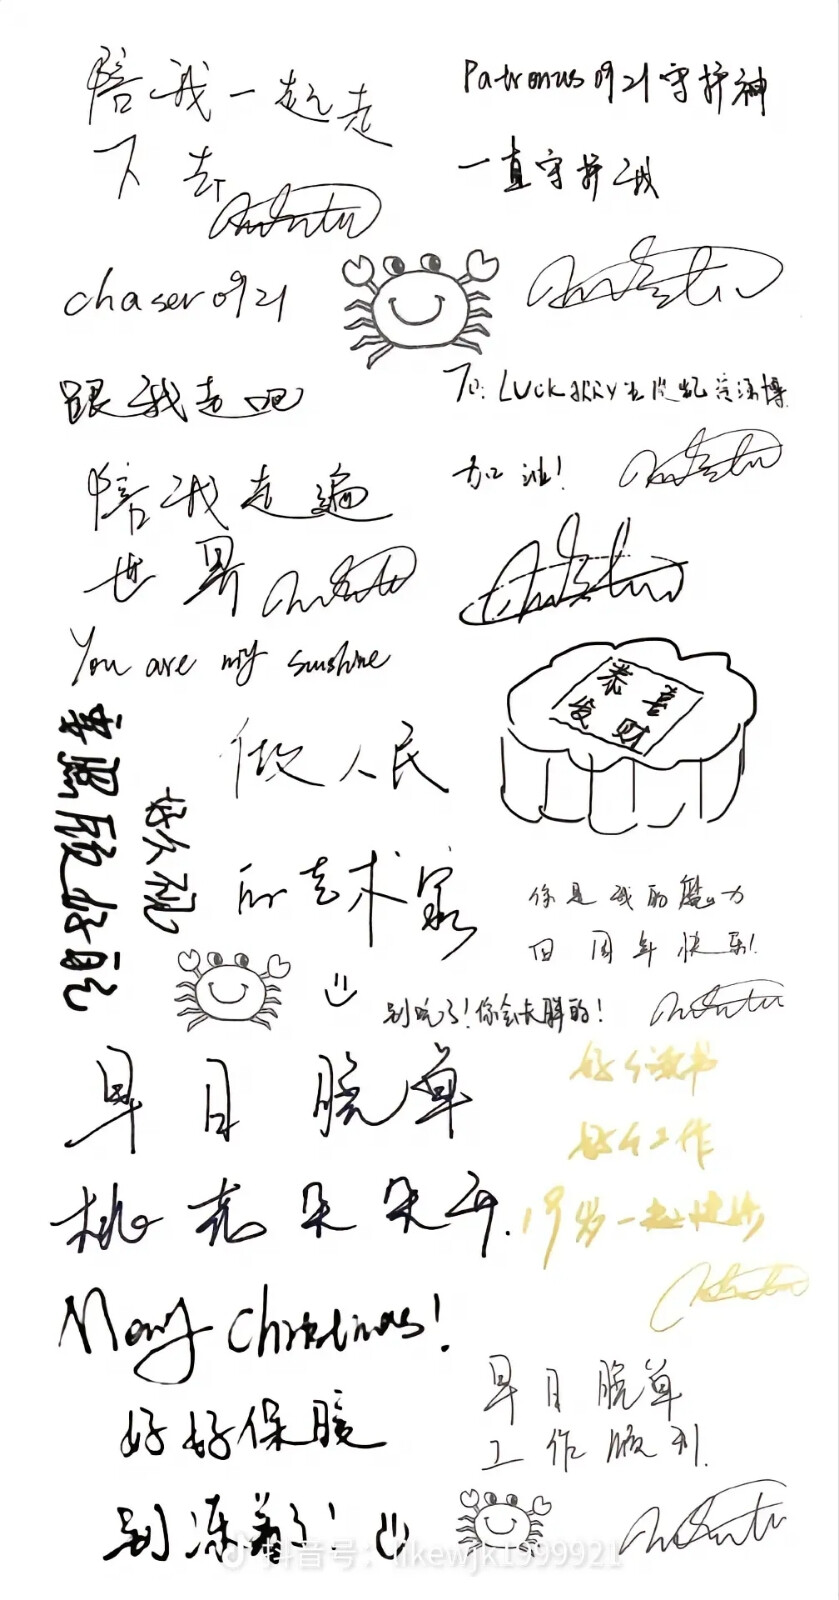 陪我一起走
下去
Patronus0921守护神
一直守护我
chaser0921
跟我走吧
To: Luck
加油！
陪我走遍
世界
You are my sunshine
恭喜
发财
做人民
的艺术家
你是我的魔力
四周年快乐！
别吃了！你会长胖的！
早日脱单
桃花朵朵开.
好好读书
好好工作
19岁一起快乐
Merry Christmas!
好好保暖
别冻着了！
早日脱单
工作顺利.
抖音号：likewjk1999921